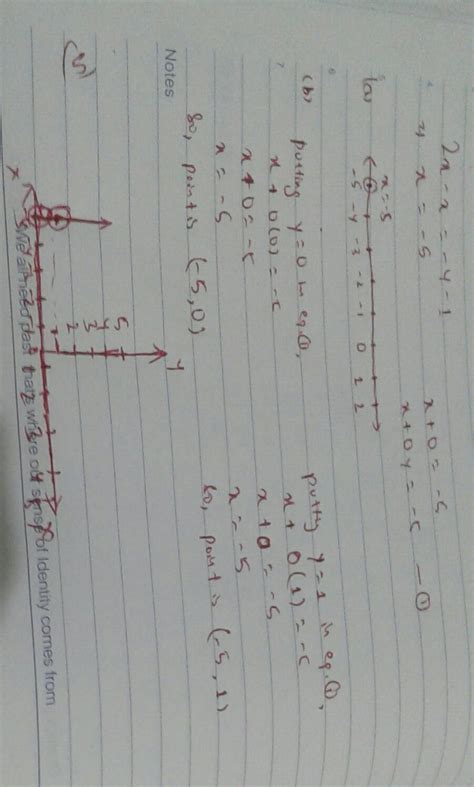 2x - x = -4 - 1
⇒ x = -5
x + 0 = -5
x + 0y = -5 — ①
(a)
x = -5
-5 -4 -3 -2 -1 0 1 2
(b) putting y = 0 in eq. ①,
x + 0(0) = -5
x + 0 = -5
x = -5
So, point is (-5, 0)
putting y = 1 in eq. ①,
x + 0(1) = -5
x + 0 = -5
x = -5
So, point is (-5, 1)
Notes
y
5
4
3
2
1
x
We all need past that's where our sense of Identity comes from